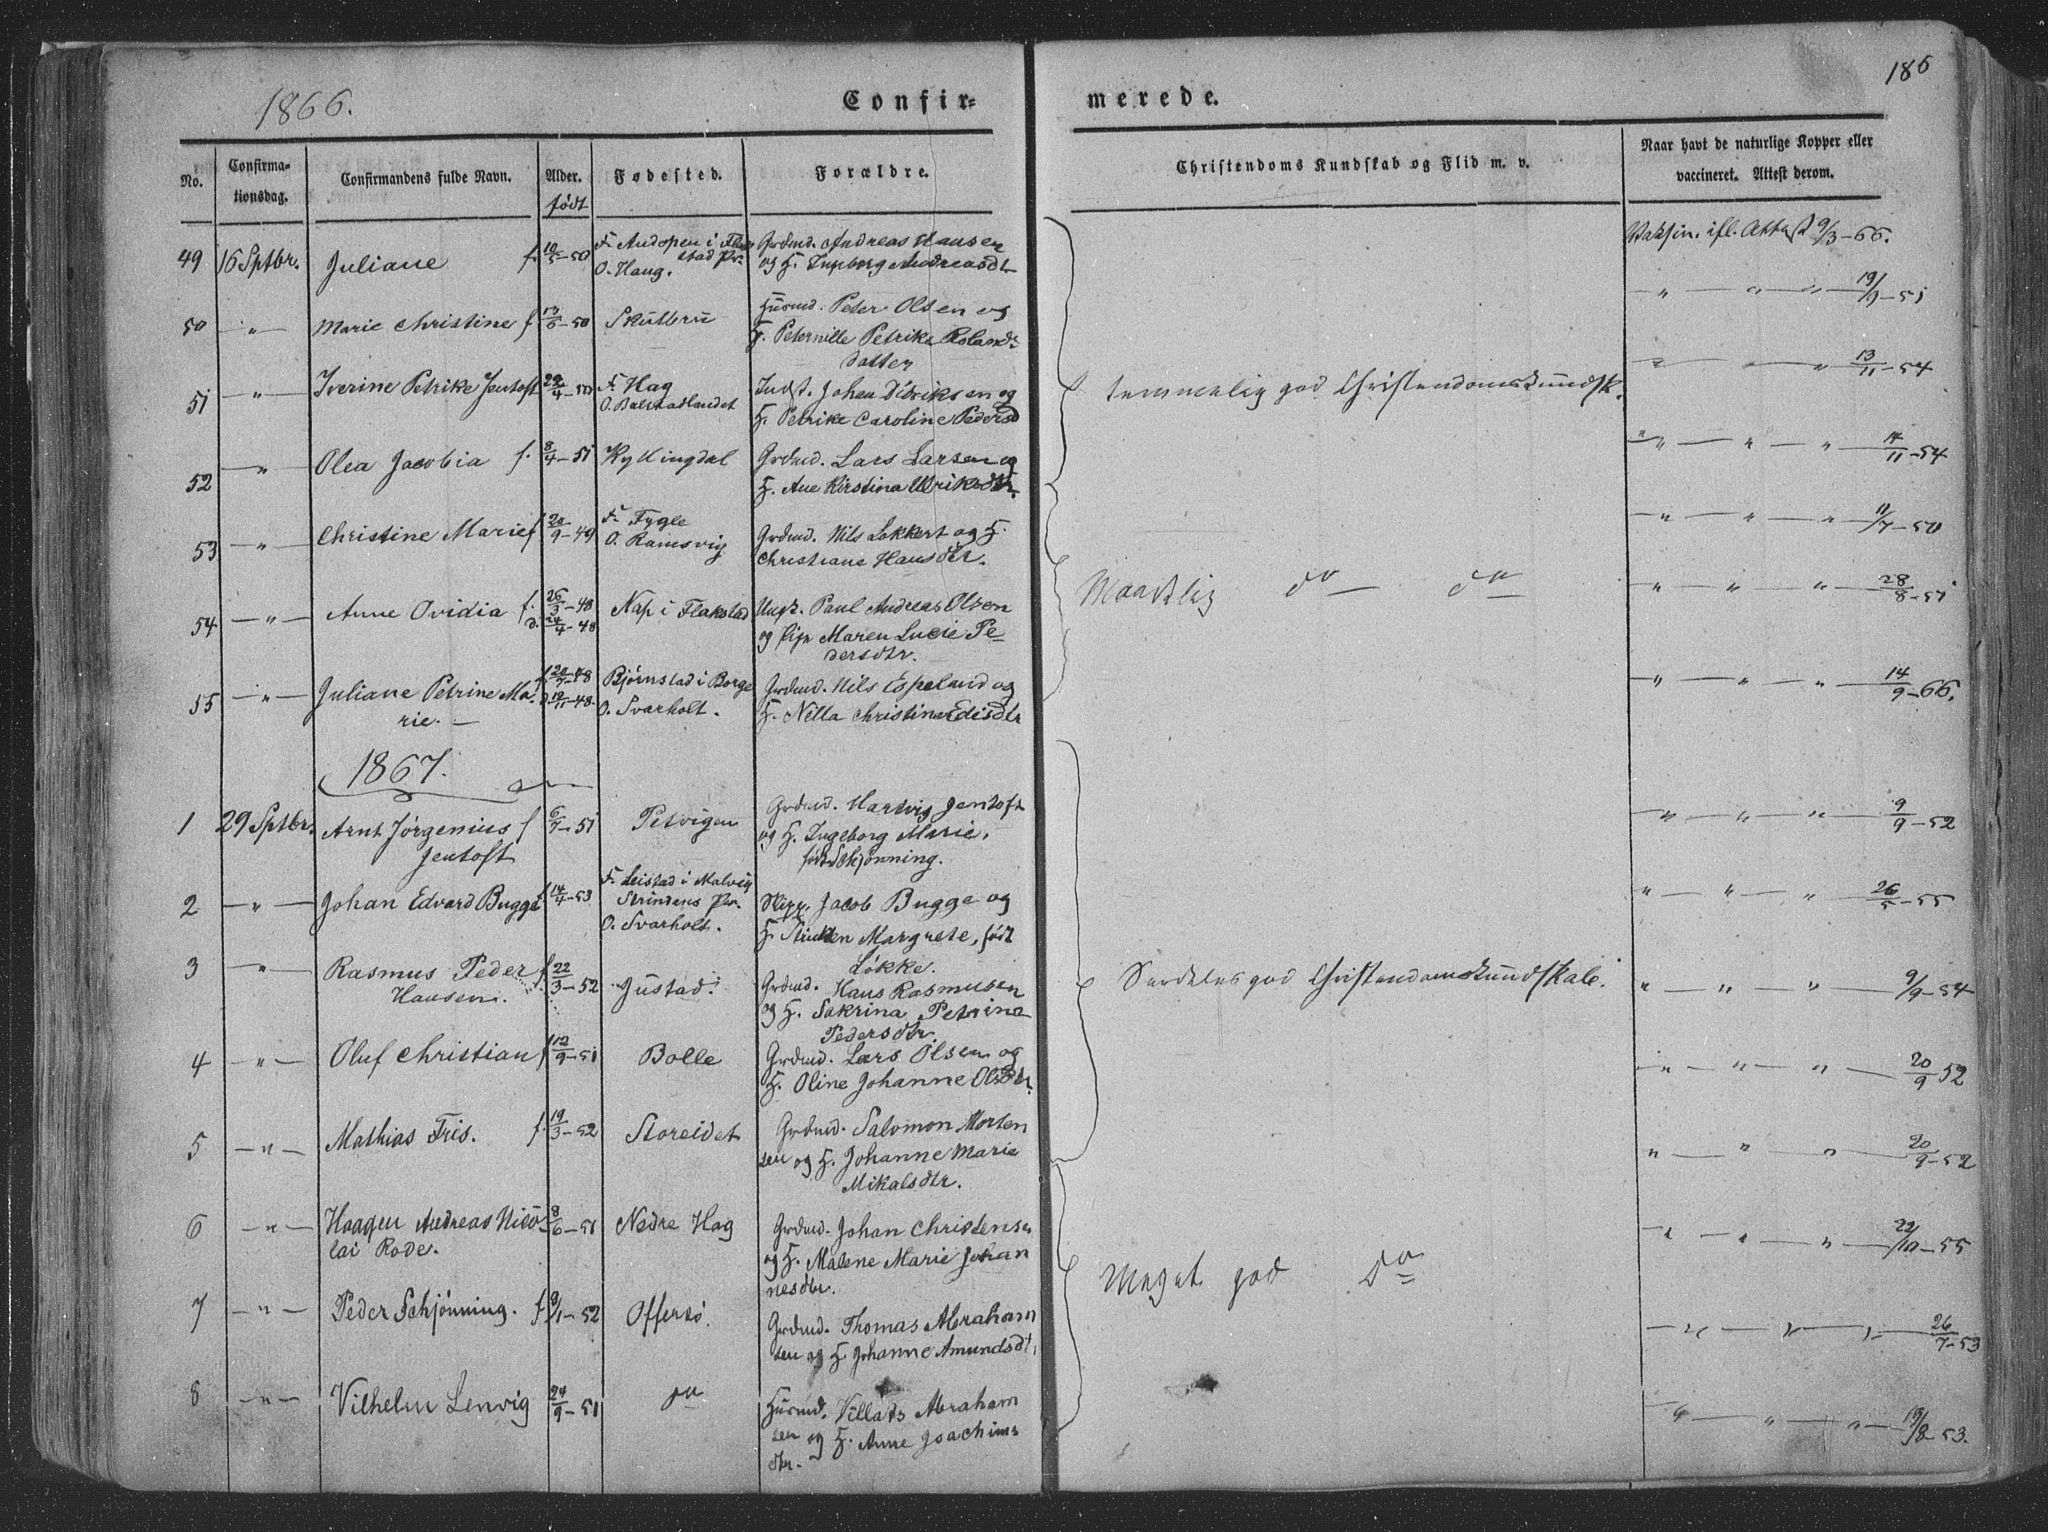 186
1866.
Confir-
merede.
No.
Confirma-
tionsdag.
Confirmandens fulde Navn.
Alder.
født
Fødested.
Forældre.
Christendoms Kundskab og Flid m. v.
Naar havt de naturlige Kopper eller
vaccineret. Attest derom.
49 16 Sptbr. Juliane f. 10/5-50 F. Andopen i Flak
stad Pr.
O. Haug.
Grdmd. Andreas Hansen
og H. Ingborg Andreasdtr
Vaksin. ifl. Attest 9/3-66.
50 -"- Marie Christine f 13/6-50 Skutbru
Husmd. Peter Olsen og
H. Peternille Petrike Rolands
datter
" " " 19/9-51
51 -"- Iverine Petrike Jentoft 22/4-50 F. Hag
O. Balstadlandet
Indst. Johan Didriksen og
H. Petrike Caroline Pedersd
temmelig god Christendomskundsk.
" " " 13/11-54
52 -"- Olea Jacobia f. 8/4-51 Kyllingdal
Grdmd. Lars Larsen og
H. Ane Kirstina Ulriksdtr.
" " " 14/11-54
53 -"- Christine Marie f 20/9-49 F. Fygle
O. Ramsvig
Grdmd. Nils Lokkert og H.
Christiane Hansdtr.
" " " 11/7-50
54 -"- Anne Ovidia f. 26/3-48
d. 24/4-48
Nap i Flakstad
Ungk. Paul Andreas Olsen
og Pige Maren Lucie Pe-
dersdtr.
Maadelig do do
" " " 28/8-51
55 -"- Juliane Petrine Ma-
rie. -
f 20/7-48
d 19/11-48.
Bjørnstad i Borge
O. Svarholt.
Grdmd. Nils Espeland og
H. Nella Christina Edisdtr
" " " 14/9-66.
1867.
1 29 Sptbr. Arnt Jørgenius f 6/7-51 Petvigen
Jentoft
Grdmd. Hartvig Jentoft
og H. Ingeborg Marie,
født Schjønning.
" " " 9/9-52
2 -"- Johan Edvard Bugge f 14/4-53 F. Leistad i Malvig
Strindens Pr.
O. Svarholt.
Skipp. Jacob Bugge og
H. Margrete, født
Løkke.
" " " 26/5-55
3 -"- Rasmus Peder f. 22/3-52 Justad.
Hansen.
Grdmd. Hans Rasmusen
og H. Sakrina Petrine
Pedersdtr.
Særdeles god Christendomskundskab.
" " " 9/9-54
4 -"- Oluf Christian f 12/9-51 Bolle
Grdmd. Lars Olsen og
H. Oline Johanne Olsdtr
" " " 20/9 52
5 -"- Mathias Fris. f. 19/3-52 Storeidet
Grdmd. Salomon Morten
sen og H. Johanne Marie
Mikalsdtr.
" " " 20/9-52
6 -"- Haagen Andreas Nico-
lai Rode.
8/6-51 Nedre Hag
Grdmd. Johan Christensen
og H. Malene Marie Johan
nesdtr.
Meget god do
" " " 22/10-55
7 -"- Peder Schjønning. f. 8/1-52 Offersø.
Grdmd. Thomas Abraham
sen og H. Johanne Amundsdt.
" " " 26/7-53
8 -"- Vilhelm Lenvig 24/9-51 do
Husmd. Villads Abraham
sen og H. Anne Joachims
dtr.
" " " 19/8-53.